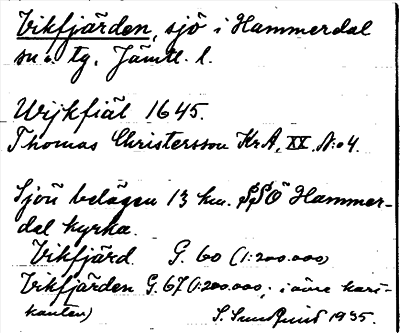 Vikfjärden, sjö i Hammerdal
sn o. tg. Jämtl. l.
Wijkfiäl 1645.
Thomas Christersson KrA, XX, N:o 4.
Sjön belägen 13 km. SSÖ Hammer-
dal kyrka.
Vikfjärd G. 60 (1:200.000)
Vikfjärden G. 67 (1:200.000; i övre kart-
kanten)
S. Sundqvist 1935.